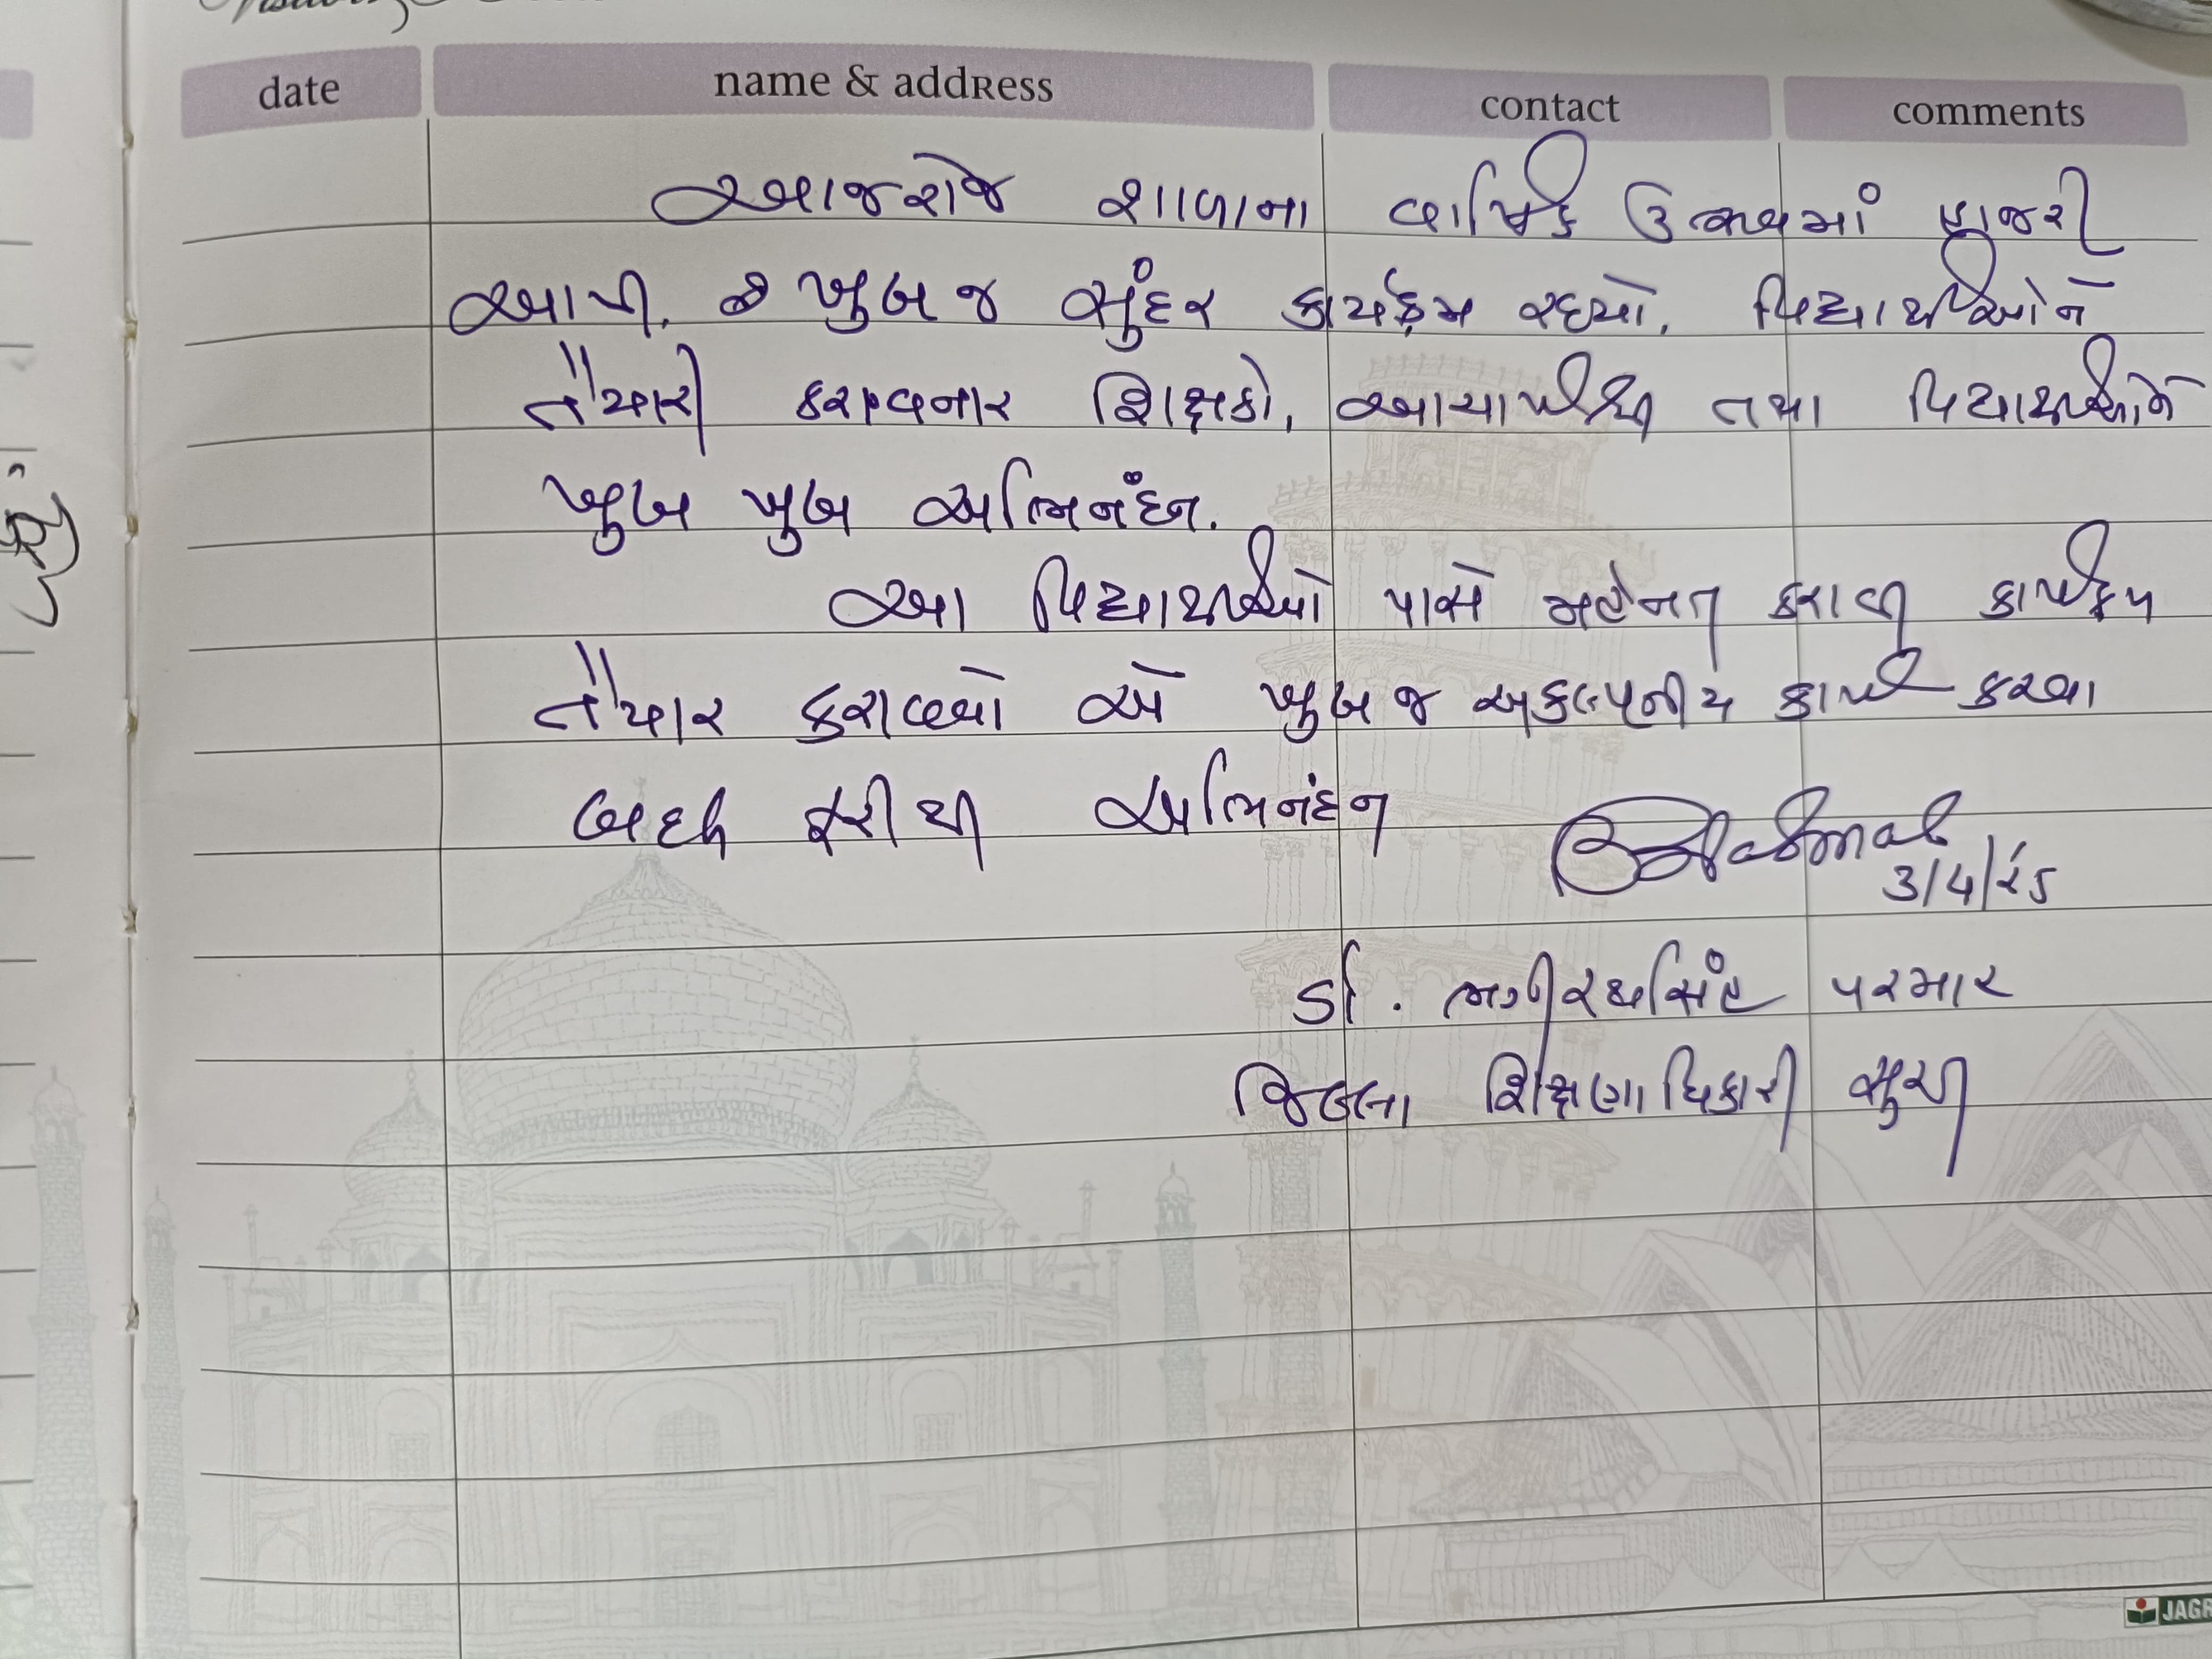 date name & address contact comments
આજરોજ શાળાના વાર્ષિક ઉત્સવમાં હાજરી
આપી. ખુબ જ સુંદર કાર્યક્રમ રહ્યો. વિદ્યાર્થીઓને
તૈયારી કરાવનાર શિક્ષકો, આચાર્યશ્રી તથા વિદ્યાર્થીઓને
ખુબ ખુબ અભિનંદન.
આ વિદ્યાર્થીઓ પાસે મહેનત કરાવી કાર્યક્રમ
તૈયાર કરાવવો એ ખુબ જ અકલ્પનીય કાર્ય કરવા
બદલ ફરીથી અભિનંદન
3/4/25
ડૉ. ભગીરથસિંહ પરમાર
જિલ્લા શિક્ષણાધિકારી સુરત
JAGR